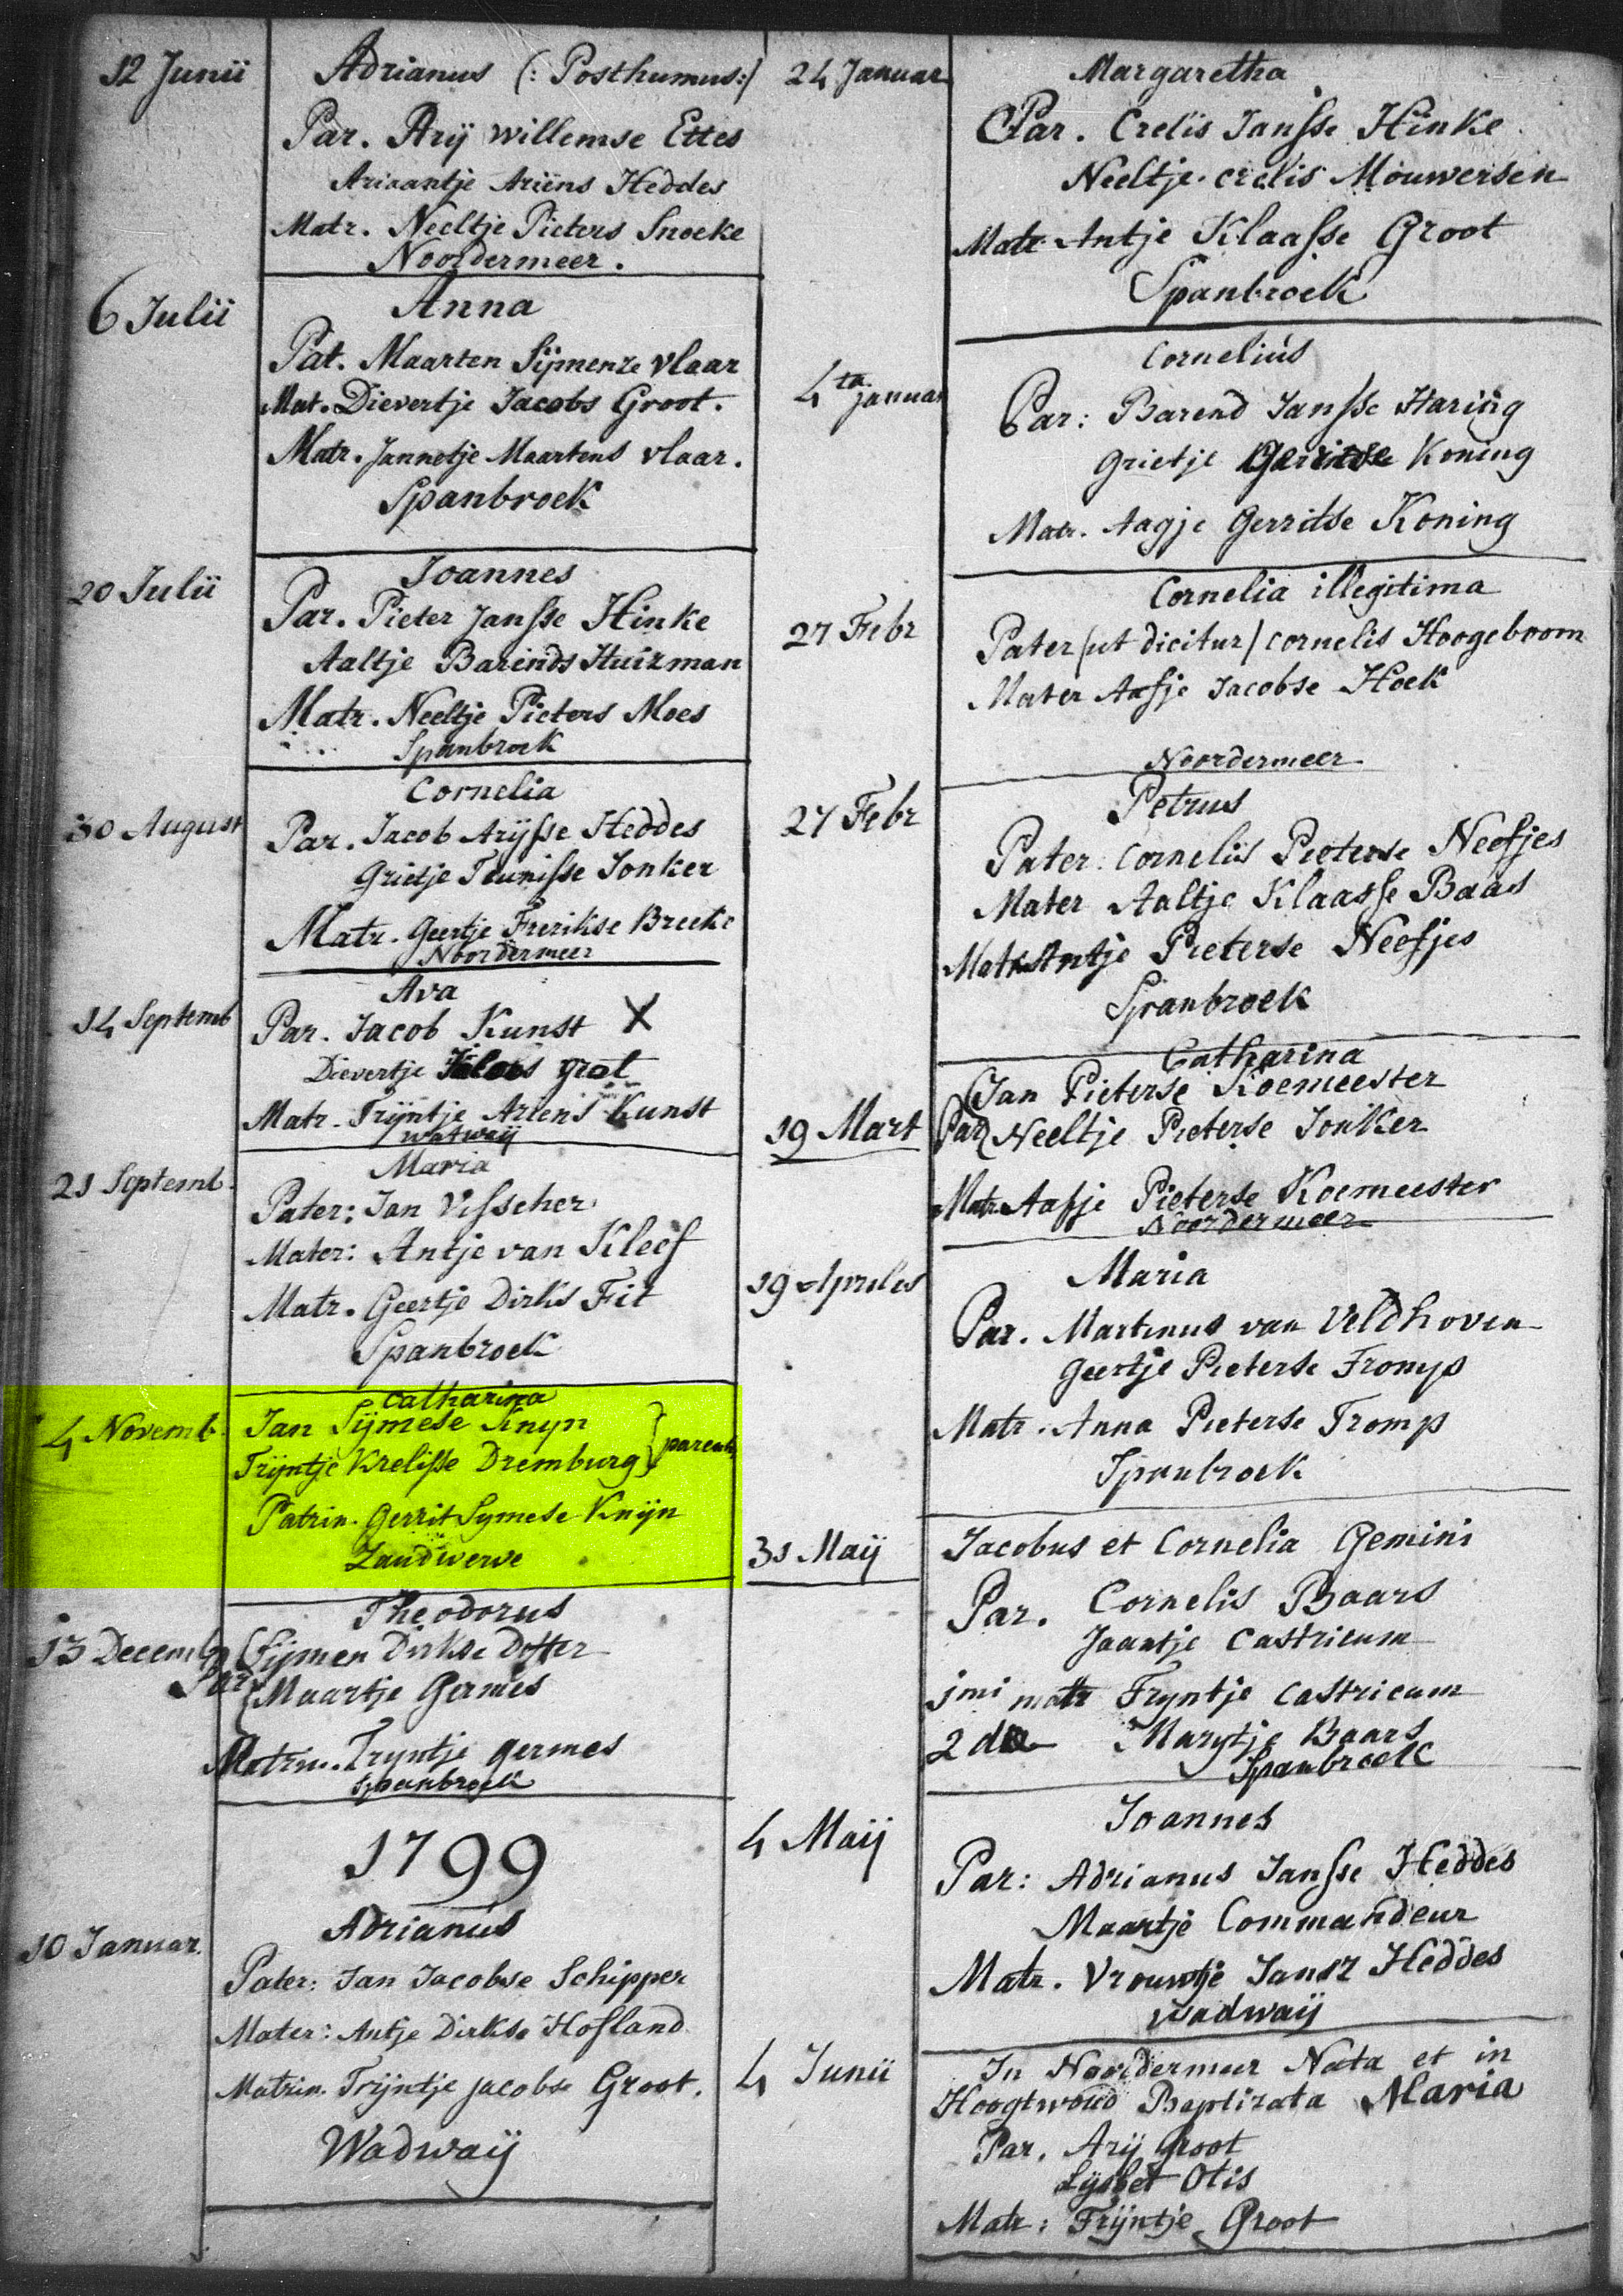 12 Junii
Adrianus (: Posthumus:)
Par. Arij Willemse Ettes
Ariaantje Ariens Heddes
Matr. Neeltje Pieters Snoeke
Noordermeer.
6 Julii
Anna
Pat. Maarten Sijmenze Vlaar
Mat. Dievertje Jacobs Groot.
Matr. Jannetje Maartens Vlaar.
Spanbroek
20 Julii
Joannes
Par. Pieter Jansse Hinke
Aaltje Barends Huizman
Matr. Neeltje Pieters Moes
Spanbroek
30 August
Cornelia
Par. Jacob Arijsse Heddes
Grietje Teunisse Jonker
Matr. Geertje Frerikse Breeke
Noordermeer
14 Septemb
Ava
Par. Jacob Kunst X
Dievertje Jacobs Groot
Matr. Trijntje Ariens Kunst
watweij
21 Septemb.
Maria
Pater: Jan Visscher
Mater: Antje van Kleef
Matr. Geertje Dirks Fit
Spanbroek
4 Novemb.
Catharina
Jan Sijmese Knyn
Trijntje Krelisse Dremburg } parents
Patrin. Gerrit Symese Knijn
Zandwerve
13 Decemb
Theodorus
Par { Sijmen Dirkse Dotter
Maartje Germes
Matrin. Tryntje Germes
Spanbroek
1799
10 Januar.
Adrianus
Pater: Jan Jacobse Schipper
Mater: Antje Dirkse Hofland
Matrin. Trijntje Jacobse Groot.
Wadwaij
24 Januar
Margaretha
Par. Crelis Jansse Hinke
Neeltje Crelis Mouwersen
Matr. Antje Klaasse Groot
Spanbroek
4ta Januar
Cornelius
Par: Barend Jansse Haring
Grietje Gerritse Koning
Matr. Aagje Gerritse Koning
27 Febr
Cornelia illegitima
Pater (ut dicitur) Cornelis Hoogeboom
Mater Aafje Jacobse Hoek
Noordermeer
27 Febr
Petrus
Pater: Cornelis Pieterse Neefjes
Mater Aaltje Klaasse Baas
Matr. Antje Pieterse Neefjes
Spanbroek
19 Mart
Catharina
Par { Jan Pieterse Koemeester
Neeltje Pieterse Jonker
Matr. Aafje Pieterse Koemeester
Noordermeer
19 Apriles
Maria
Par. Martinus van Veldhoven
Geertje Pieterse Tromp
Matr. Anna Pieterse Tromp
Spanbroek
31 Maij
Jacobus et Cornelia Gemini
Par. Cornelis Baars
Jaantje Castricum
1mi matr Tryntje Castricum
2dæ Marytje Baars
Spanbroek
4 Maij
Joannes
Par: Adrianus Jansse Heddes
Maartje Commandeur
Matr. Vrouwtje Jansz Heddes
Wadwaij
4 Junii
In Noordermeer Nata et in
Hoogtwoud Baptizata Maria
Par. Arij Groot
Lijsbet Otis
Matr: Trijntje Groot